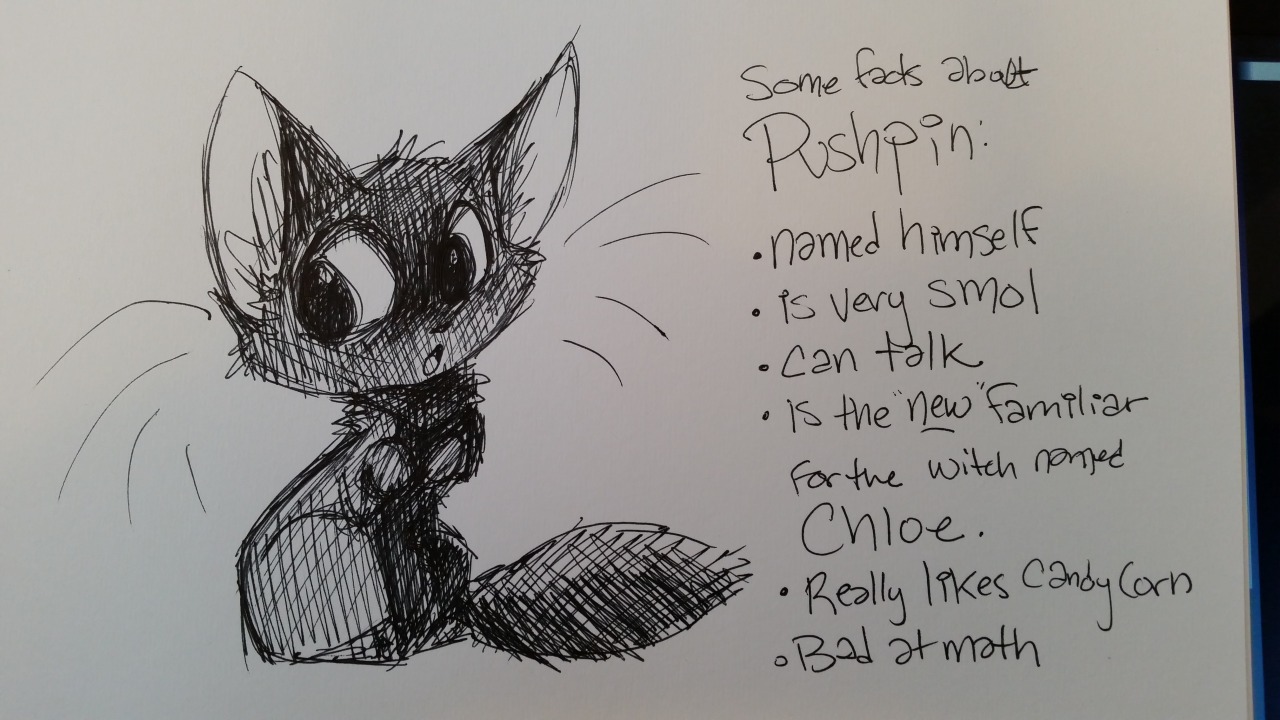 Some facts about
Pushpin:
• named himself
• is very smol
• can talk
• is the "new" familiar
for the witch named
Chloe.
• Really likes Candy Corn
• Bad at math